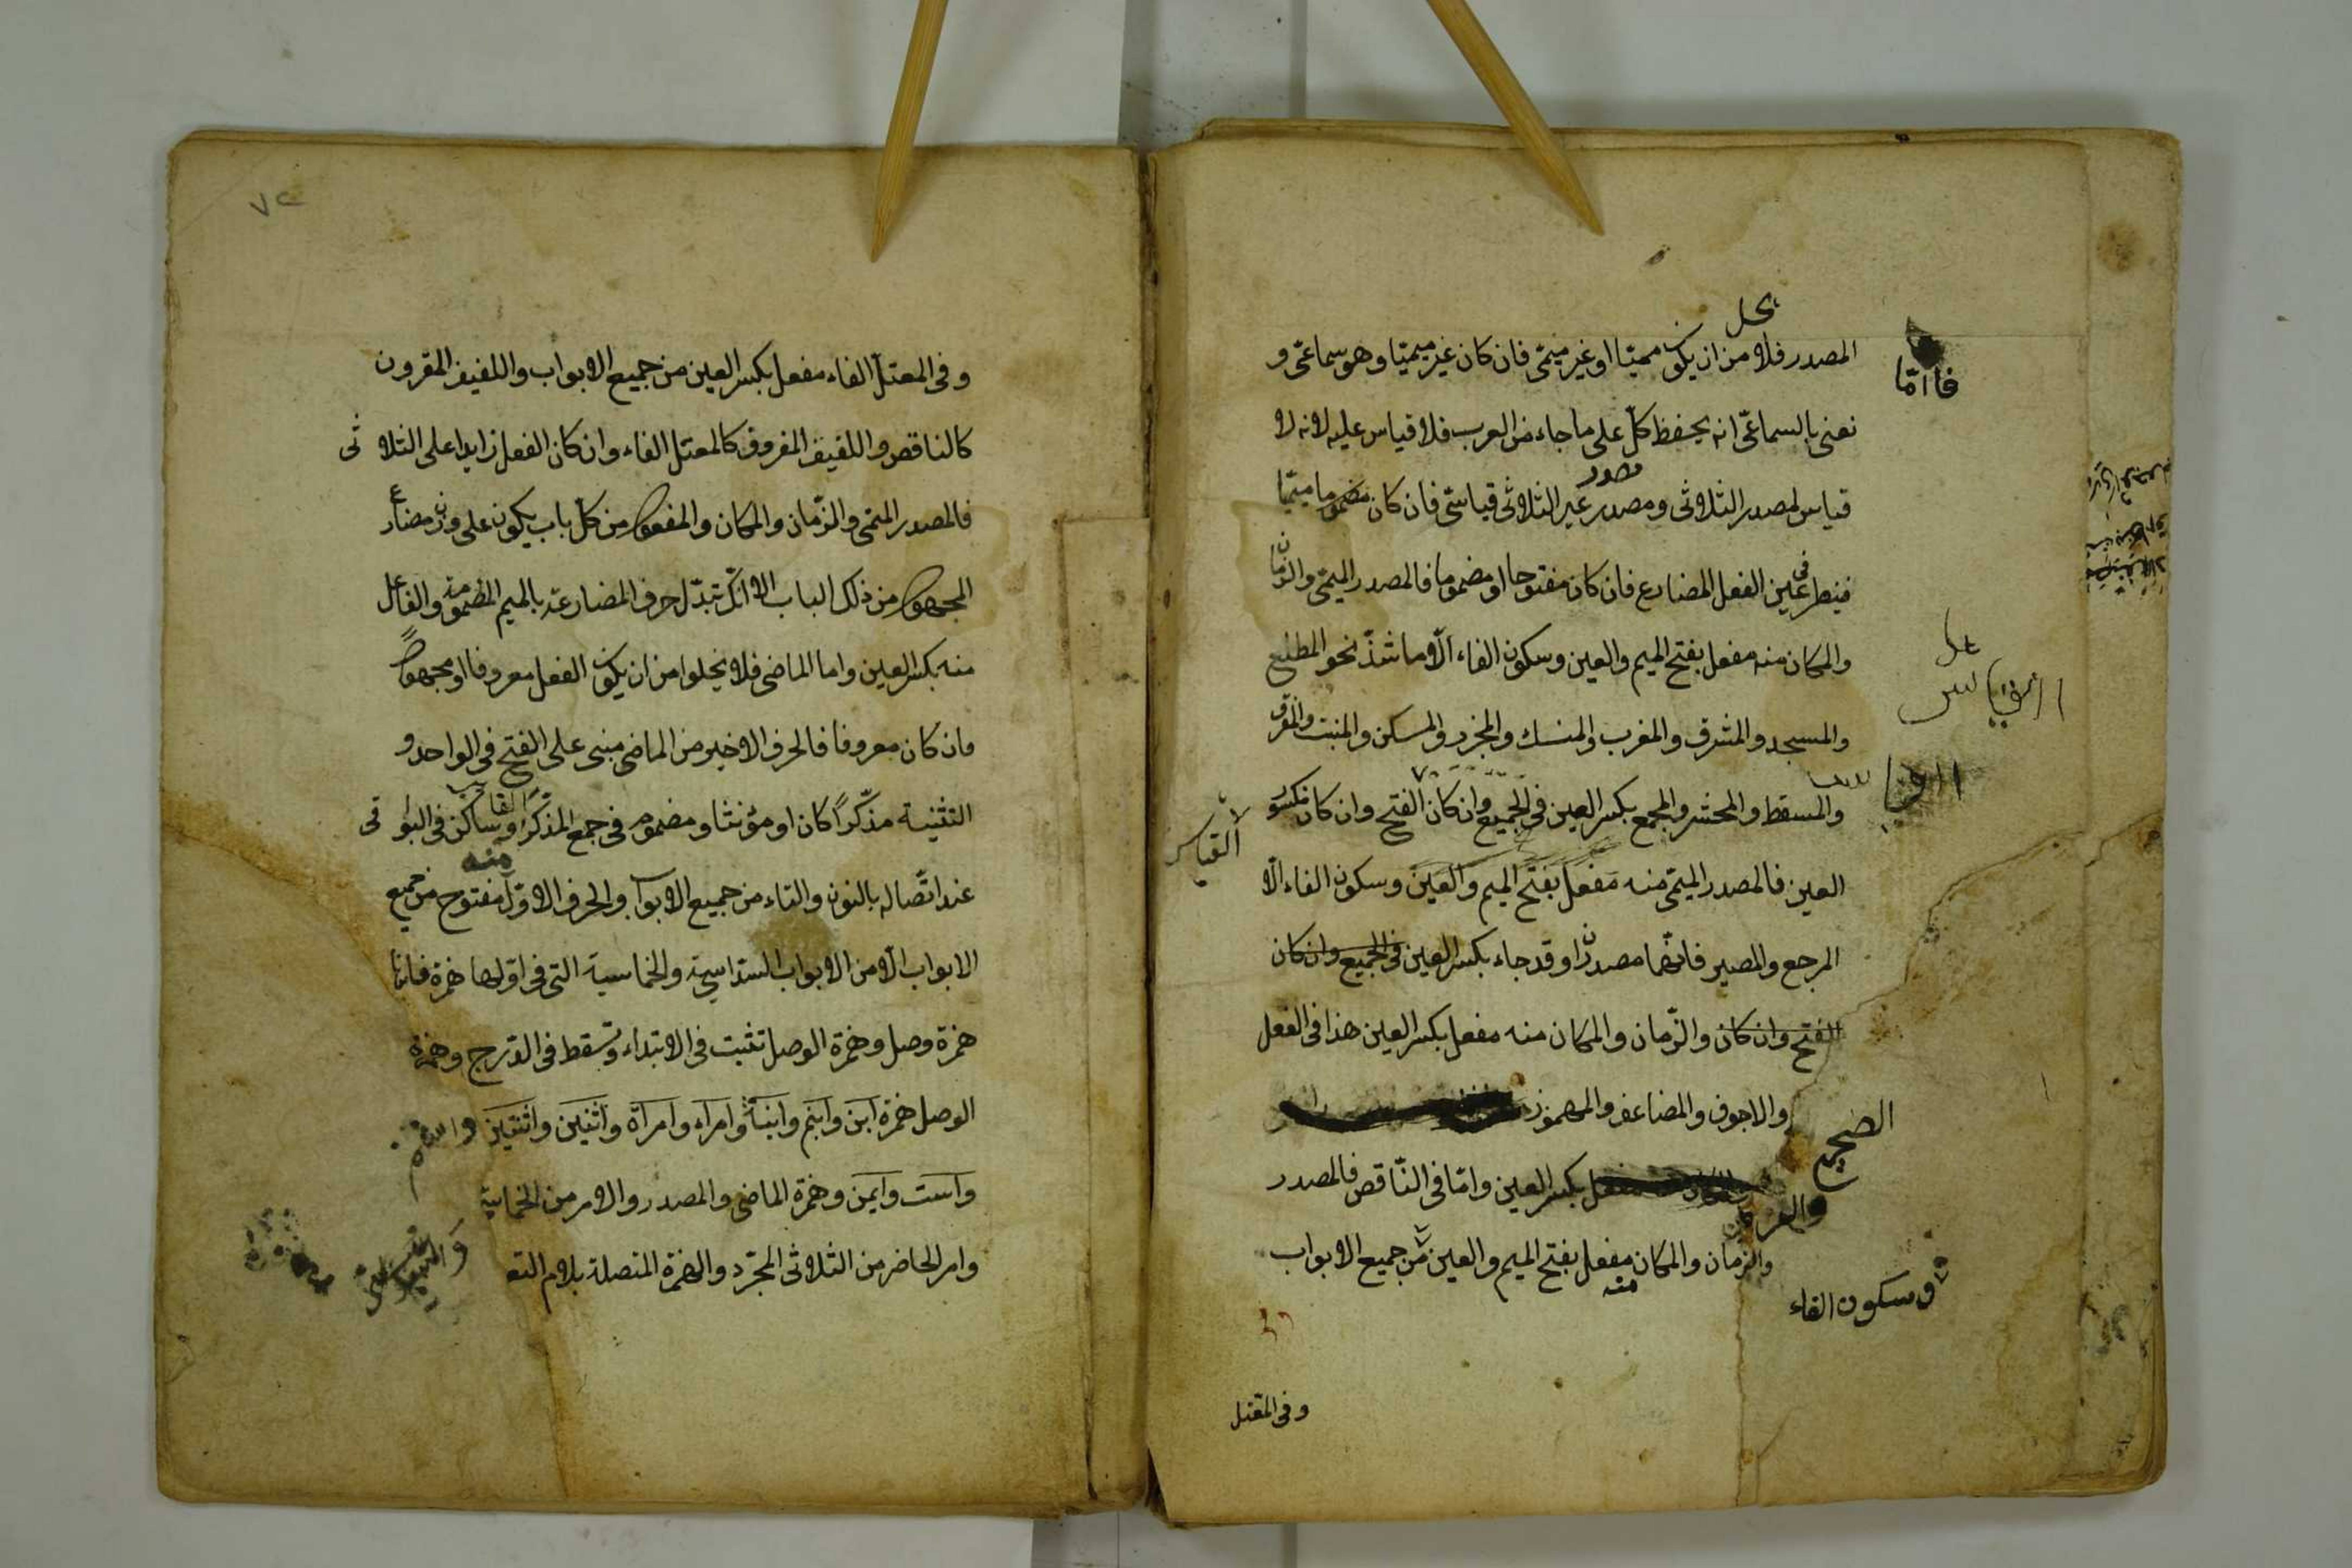 يخل
المصدر فلا من ان يكون ميميّا او غير ميمىّ فان كان غير ميميّا وهو سماعىّ و
فاامّا
نعنى بالسماعىّ انه يحفظ كلّ على ما جاء من العرب فلا قياس عليه لانه لا
مصدر
قياس لمصدر الثلاثى ومصدر غير الثلاثى قياسىّ فان كان ميميّا
فينظر فى عين الفعل المضارع فان كان مفتوحا او مضموما فالمصدر الميمىّ والزمان
والمكان منه مفعل بفتح الميم والعين وسكون الفاء الّا ما شذّ نحو المطلع
والمسجد والمشرق والمغرب والمنسك والمجزر والمسكن والمنبت والمفرق
والمسقط والمحشر والمجمع بكسر العين فى الجميع وان كان الفتح وان كان مكسور
القياس
العين فالمصدر الميمىّ منه مفعل بفتح الميم والعين وسكون الفاء الّا
المرجع والمصير فانّهما مصدران وقد جاء بكسر العين فى الجميع وان كان
الفتح وان كان والزّمان والمكان منه مفعل بكسر العين هذا فى الفعل
الصحيح
والاجوف والمضاعف والمهموز
مفعل بكسر العين وامّا فى النّاقص فالمصدر
والزمان والمكان منه مفعل بفتح الميم والعين من جميع الابواب
وسكون الفاء
وفى المعتل
٧٢
وفى المعتلّ الفاء مفعل بكسر العين من جميع الابواب واللفيف المقرون
كالناقص واللفيف المفروق كالمعتل الفاء وان كان الفعل زايدا على الثلاثى
فالمصدر الميمى والزّمان والمكان والمفعول من كلّ باب يكون على وزن مضارع
المجهول من ذلك الباب الا انّك تبدّل حرف المضارعة بالميم المضمومة والفاعل
منه بكسر العين واما الماضى فلا يخلوا من ان يكون الفعل معروفا او مجهولاً
فان كان معروفا فالحرف الاخير من الماضى مبنى على الفتح فى الواحد و
التثنية مذكّرًا كان او مؤنثا ومضموم فى جمع المذكّر الغائب وساكن فى البواقى
منه
عند اتّصاله بالنون والتاء من جميع الابواب والحرف الاوّل مفتوح من جميع
الابواب الّا من الابواب السّداسية والخماسية التى فى اوّلها همزة فانها
همزة وصل وهمزة الوصل تثبت فى الابتداء وتسقط فى الدّرج وهمزة
الوصل همزة ابن وابنم وابنة وامرء وامراة واثنين واثنتين واسم
واست وايمن وهمزة الماضى والمصدر والامر من الخماسية
والسداسى
وامر الحاضر من الثلاثى المجرّد والهمزة المتصلة بلام التعـ